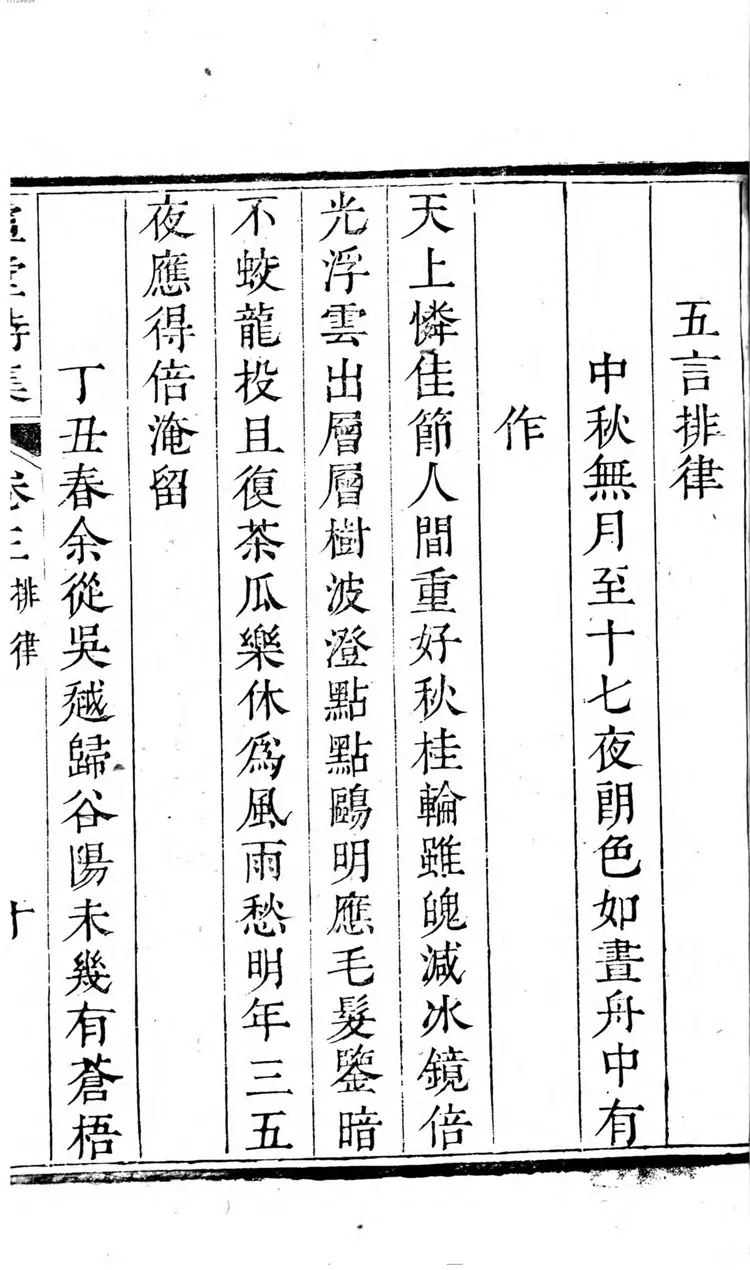 五言排律
中秋無月至十七夜朗色如晝舟中有
作
天上憐佳節人間重好秋桂輪雖魄減冰鏡倍
光浮雲出層層樹波澄點點鷗明應毛髮鑒暗
不蛟龍投且復茶瓜樂休爲風雨愁明年三五
夜應得倍淹留
丁丑春余從吳越歸谷陽未幾有蒼梧
堂詩集
卷三 排律
十